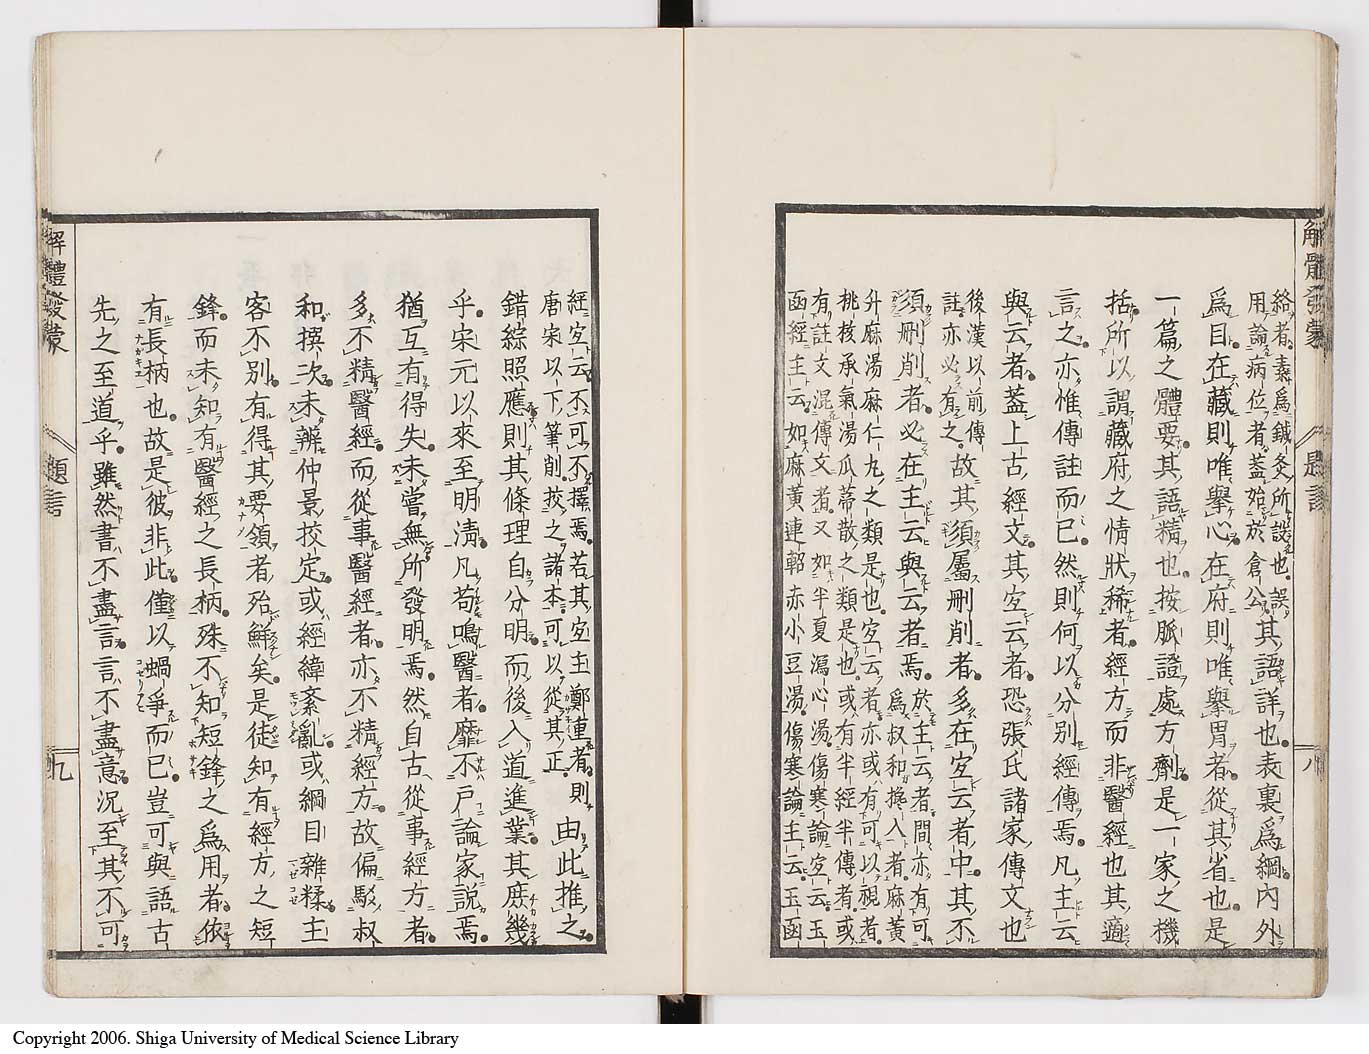 解體發蒙
題言
八
絡者素爲鍼灸所設也誤
用論病位者蓋始於倉公其語詳也表裏爲綱内外
爲目在藏則唯擧心在府則唯擧胃者從其省也是
一篇之體要其語精也按脈證處方劑是一家之機
括所以謂藏府之情狀稀者經方而非醫經也其適
言之亦惟傳註而已然則何以分別經傳焉凡主云
與云者蓋上古經文其宜云者恐張氏諸家傳文也
後漢以前傳
註亦必有之故其須屬刪削者多在宜云者中其不
須刪削者必在主云與云者焉於主云者間亦有可
爲叔和攙入者麻黄
升麻湯麻仁丸之類是也宜云者亦或有可以視者
桃核承氣湯瓜蒂散之類是也或有半經半傳者或
有註文混傳文者又如半夏瀉心湯傷寒論宜云玉
函經主云如麻黄連軺赤小豆湯傷寒論主云玉函
經宜云不可不擇焉若其宜主鄭連者則由此推之
唐宋以下筆削挍之諸本可以從其正
錯綜照應則其條理自分明而後入道進業其庶幾
乎宋元以來至明淸凡苟鳴醫者靡不戸論家説焉
猶互有得失未嘗無所發明焉然自古從事經方者
多不精醫經而從事醫經者亦不精經方故偏駁叔
和撰次未辨仲景挍定或經緯紊亂或綱目雜糅主
客不別有得其要領者殆鮮矣是徒知有經方之短
鋒而未知有醫經之長柄殊不知短鋒之爲用者依
有長柄也故是彼非此僅以蝸爭而已豈可與語古
先之至道乎雖然書不盡言言不盡意況至其不可
解體發蒙
題言
九
Copyright 2006. Shiga University of Medical Science Library